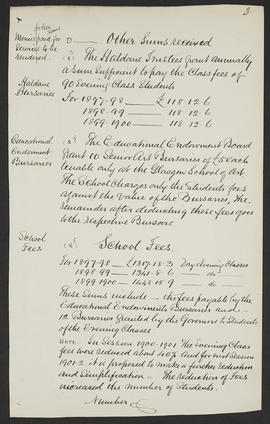 3
Monies paid for
Services to be
rendered
D — Other Sums received
Haldane
Bursaries
The Haldane Trustees grant annually
a sum sufficient to pay the Class fees of
90 Evening Class Students
For 1897-98 — £118.12.6
1898-99 — 118.12.6
1899-1900 — 118.12.6
Educational
Endowment
Bursaries
The Educational Endowment Board
Grant 10 Senior Art Bursaries of £5 each
tenable only at the Glasgow School of Art
The School Charges only the Students fees
against the Value of the Bursaries, The
remainder after deducting these fees goes
to the respective Bursars
School
Fees
School Fees.
For 1897-98 — £1317.18.3 Day & Evening Classes
1898-99 — 1341.8.6 — do
1899-1900 — 1448.15.9 — do
These Sums include — the fees payable by the
Educational Endowments Bursaries and
12 Bursaries granted by the Governors to Students
of the Evening Classes
Note. In Session 1900-1901 The Evening Class
fees were reduced about 40% and for next Session
1901-2 it is proposed to make a further reduction
and Simplification — The reduction of Fees
increased the number of Students.
Number